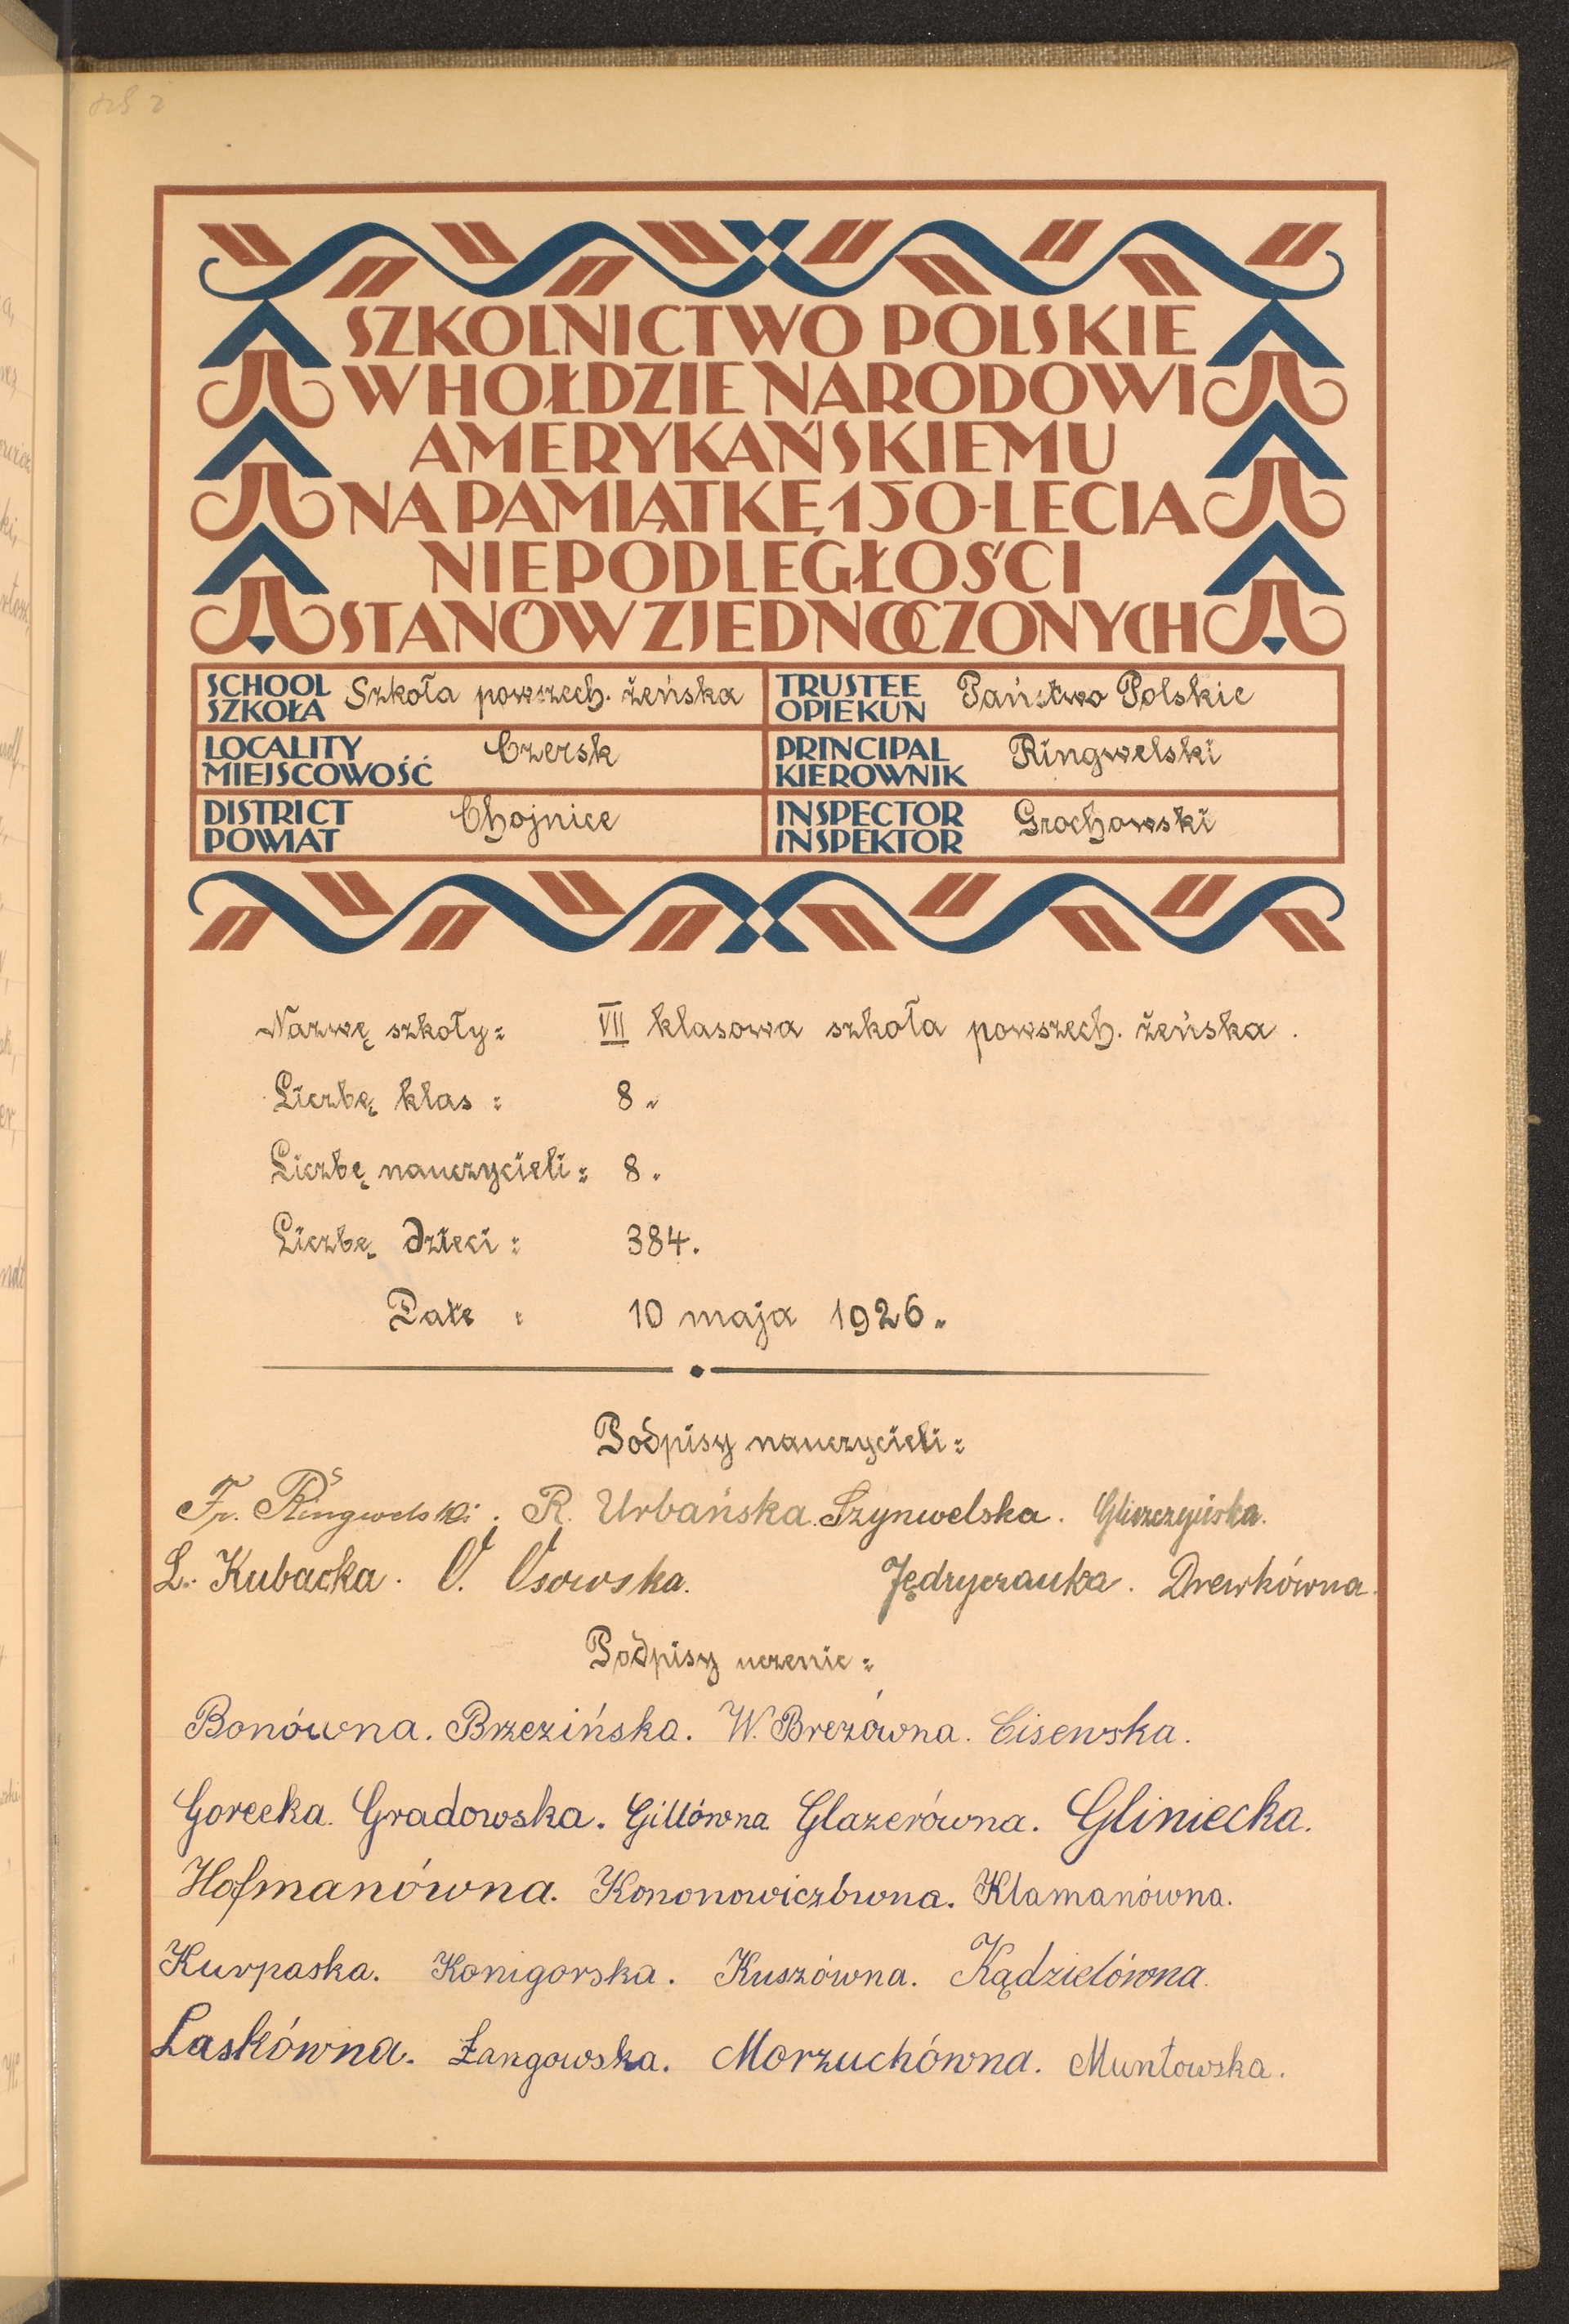 SZKOLNICTWO POLSKIE
W HOŁDZIE NARODOWI
AMERYKAŃSKIEMU
NA PAMIĄTKĘ 150-LECIA
NIEPODLEGŁOŚCI
STANÓW ZJEDNOCZONYCH
SCHOOL SZKOŁA Szkoła powszech. żeńska
TRUSTEE OPIEKUN Państwo Polskie
LOCALITY MIEJSCOWOŚĆ Czersk
PRINCIPAL KIEROWNIK Ringwelski
DISTRICT POWIAT Chojnice
INSPECTOR INSPEKTOR Grochowski
Nazwę szkoły: VII klasowa szkoła powszech. żeńska.
Liczbę klas: 8.
Liczbę nauczycieli: 8.
Liczbę dzieci: 384.
Datę: 10 maja 1926.
Podpisy nauczycieli:
Fr. Ringwelski. R. Urbańska. Szynwelska. Gliszczyńska.
L. Kubacka. O. Osowska. Jędryczauka. Drewkówna.
Podpisy uczenic:
Bonówna. Brzezińska. W. Brezówna. Cisewska.
Gorecka. Gradowska. Gillówna. Glazerówna. Gliniecka.
Hofmanówna. Kononowiczówna. Klamanówna.
Kurpaska. Konigorska. Kuszówna. Kądzielówna.
Laskówna. Łangowska. Morzuchówna. Muntowska.